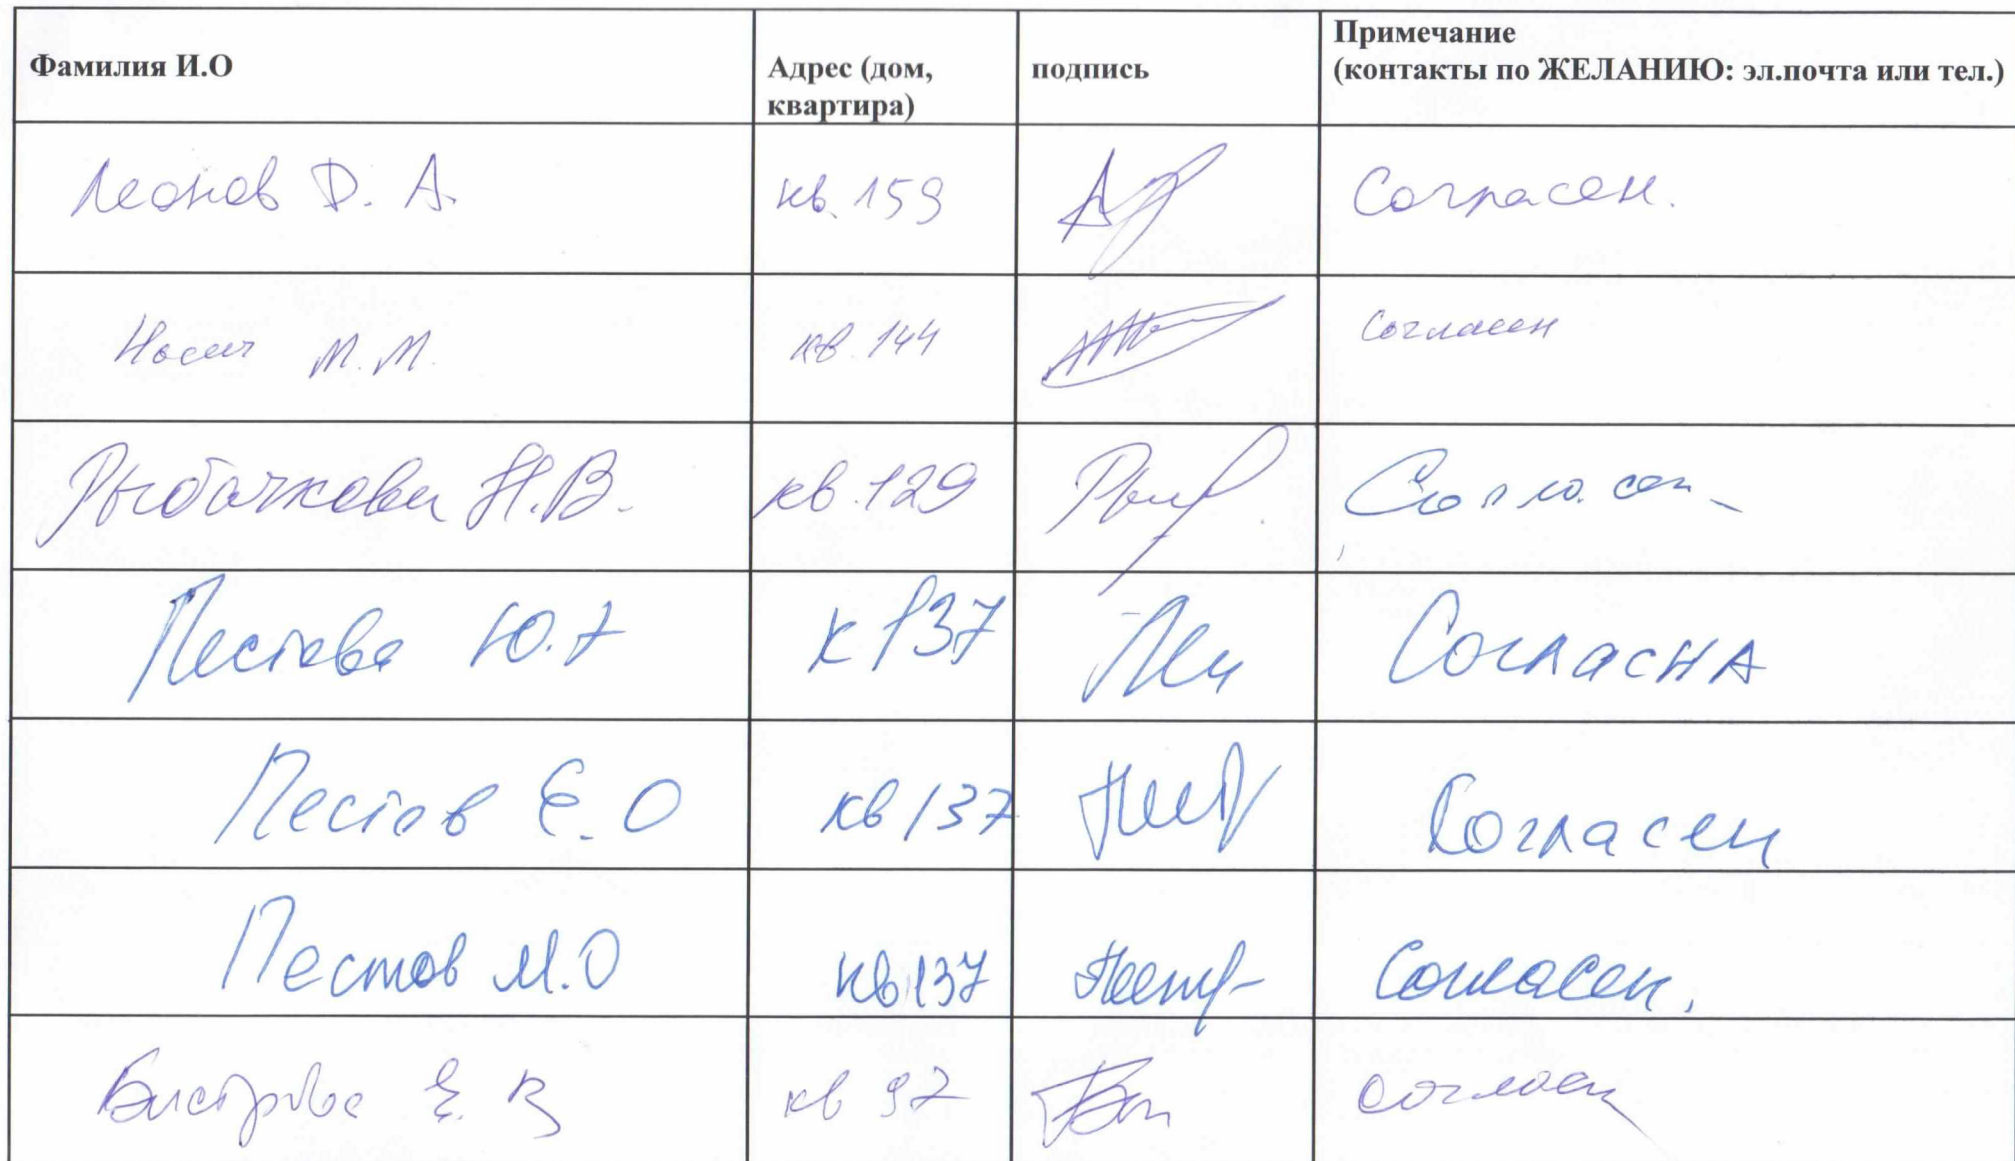 Фамилия И.О
Адрес (дом,
квартира)
подпись
Примечание
(контакты по ЖЕЛАНИЮ: эл.почта или тел.)
Леонов Д. А. кв. 159 Согласен.
Носич М. М. кв. 144 Согласен
Рыбачкова Н.В. кв. 129 Согласен
Пестова Ю.А к 137 Согласна
Пестов Е.О кв 137 Согласен
Пестов М.О кв 137 Согласен.
Быстрова Е. В кв 97 согласен